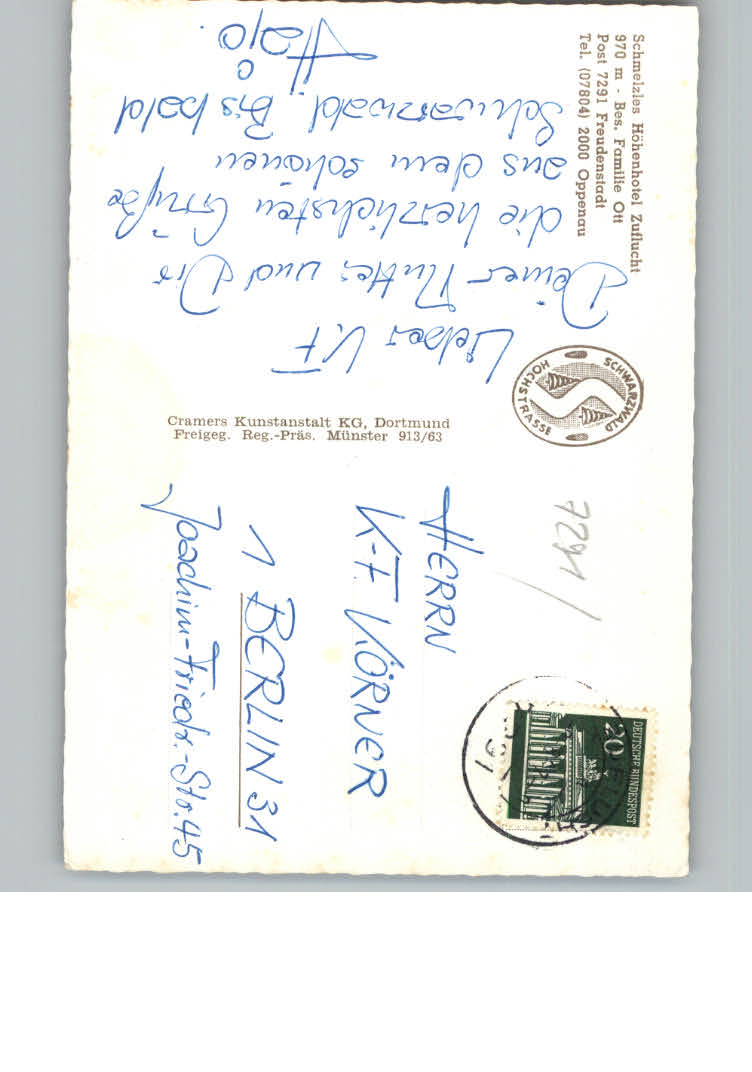 Schmelzles Höhenhotel Zuflucht
970 m - Bes. Familie Ott
Post 7291 Freudenstadt
Tel. (07804) 2000 Oppenau
Lieber K.F
Deiner Mutter und Dir
die herzlichsten Grüße
aus dem schönen
Schwarzwald. Bis bald
Hajo.
SCHWARZWALD
HOCHSTRASSE
Cramers Kunstanstalt KG, Dortmund
Freigeg. Reg.-Präs. Münster 913/63
7291/
DEUTSCHE BUNDESPOST
20
HERRN
K-F. KÖRNER
1 BERLIN 31
Joachim-Friedr.-Str. 45